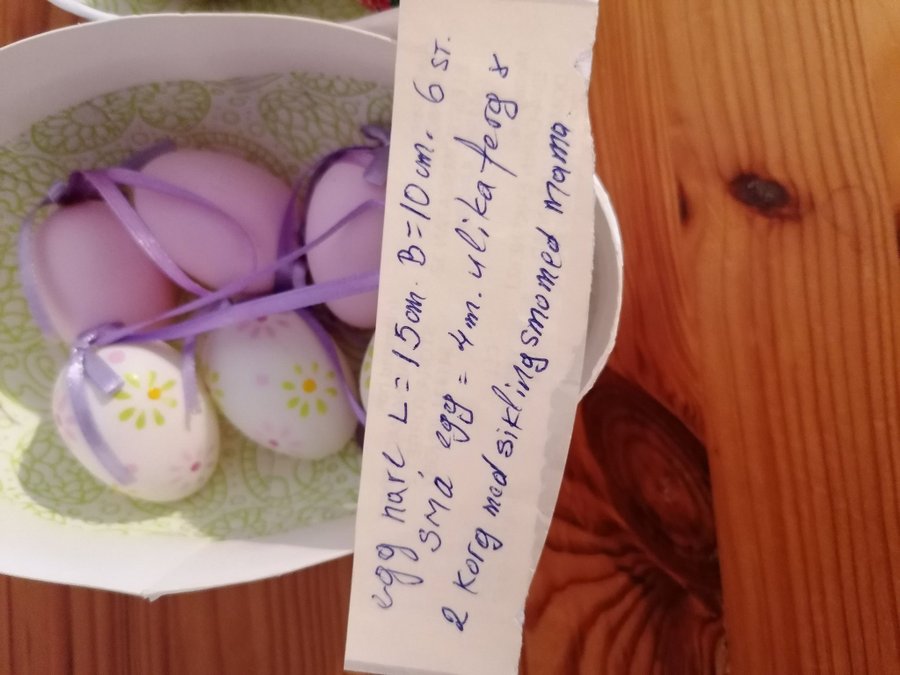 egg narl L = 15 cm. B = 10 cm. 6 ST.
SMÁ egg = 4 m. ulika ferg 8
2 Korg med siklingsmomed mama.